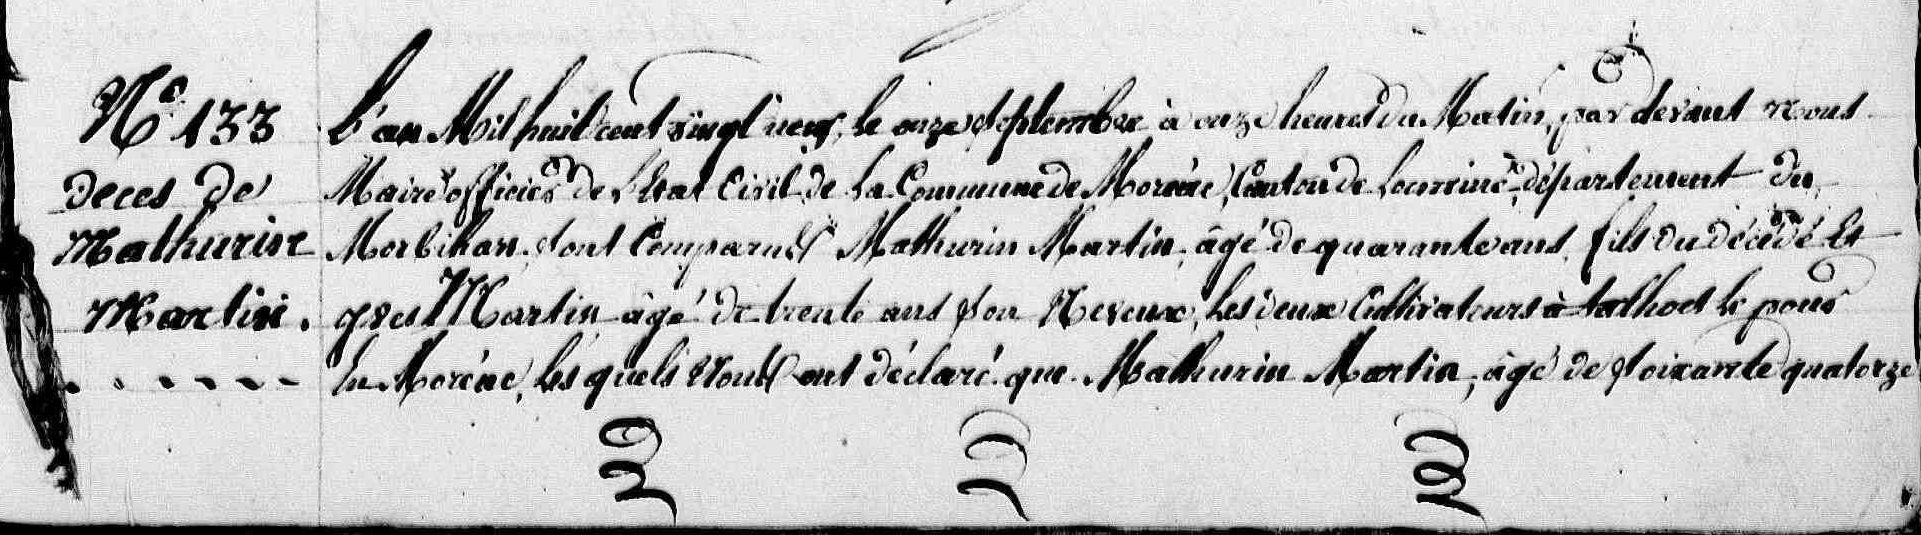 N.º 133
Deces de
Mathurin
Martin.
L'an Mil huit cent vingt neuf, le onze septembre à onze heures du Matin, par devant nous
Maire officier de l'Etat Civil de la Commune de Moréac, Canton de Locminé, département du
Morbihan, sont Comparus Mathurin Martin, âgé de quarante ans, fils du décédé Et
Yves Martin âgé de trente ans son Neveux, les deux Cultivateurs à talhoet le
En Moréac, les quels Nous ont déclaré que Mathurin Martin, âgé de soixante quatorze